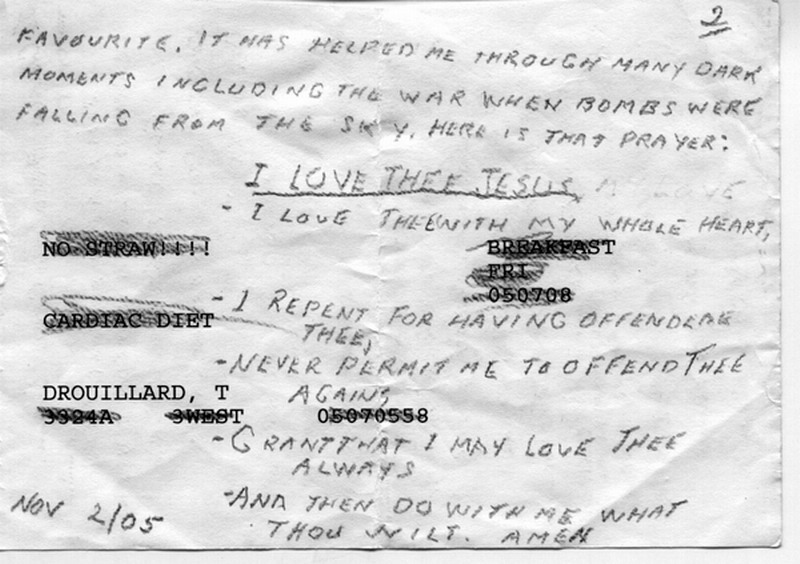 2
FAVOURITE. IT HAS HELPED ME THROUGH MANY DARK
MOMENTS INCLUDING THE WAR WHEN BOMBS WERE
FALLING FROM THE SKY. HERE IS THAT PRAYER:
I LOVE THEE JESUS, MY LOVE
- I LOVE THEE WITH MY WHOLE HEART,
NO STRAW!!!! BREAKFAST
FRI
050708
- I REPENT FOR HAVING OFFENDED
CARDIAC DIET THEE,
- NEVER PERMIT ME TO OFFEND THEE
DROUILLARD, T AGAIN,
3324A 3WEST 05070558
- GRANT THAT I MAY LOVE THEE
ALWAYS
- AND THEN DO WITH ME WHAT
NOV 2/05 THOU WILT. AMEN